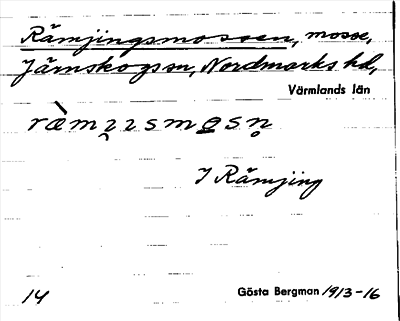 Rämjingsmossen, mosse,
Järnskogs sn, Nordmarks hd,
Värmlands län
I Rämjing
14 Gösta Bergman 1913-16